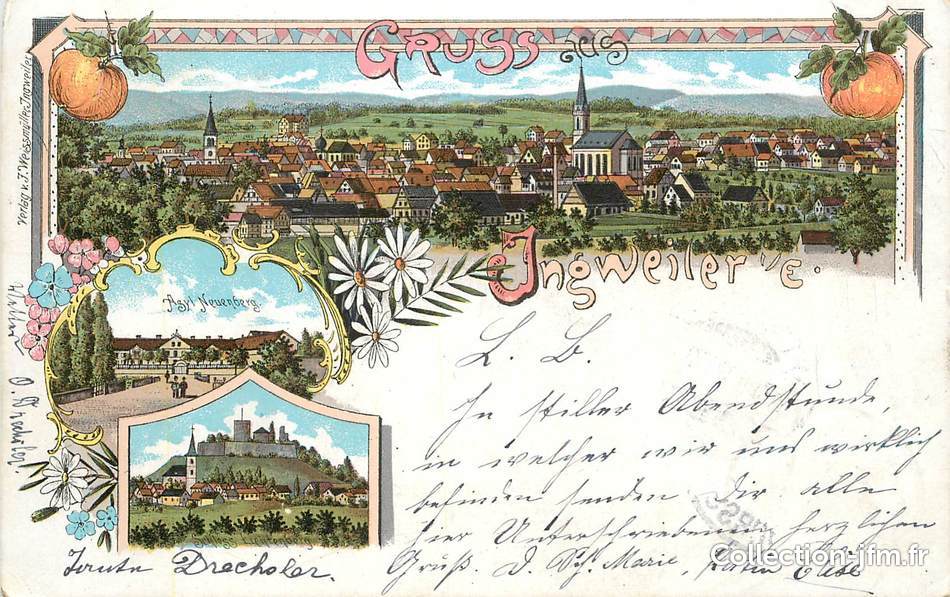 Gruss aus
Verlag v. J. Weissmüller, Ingweiler
Ingweiler i/E.
Asyl Neuenberg.
L. B.
In stiller Abendstunde,
in welcher wir uns wirklich
befinden senden Dir alle
hier Unterschriebenen herzlichen
Gruß. D. Sch. Marie, Elise
Drechsler.
Collection-jfm.fr